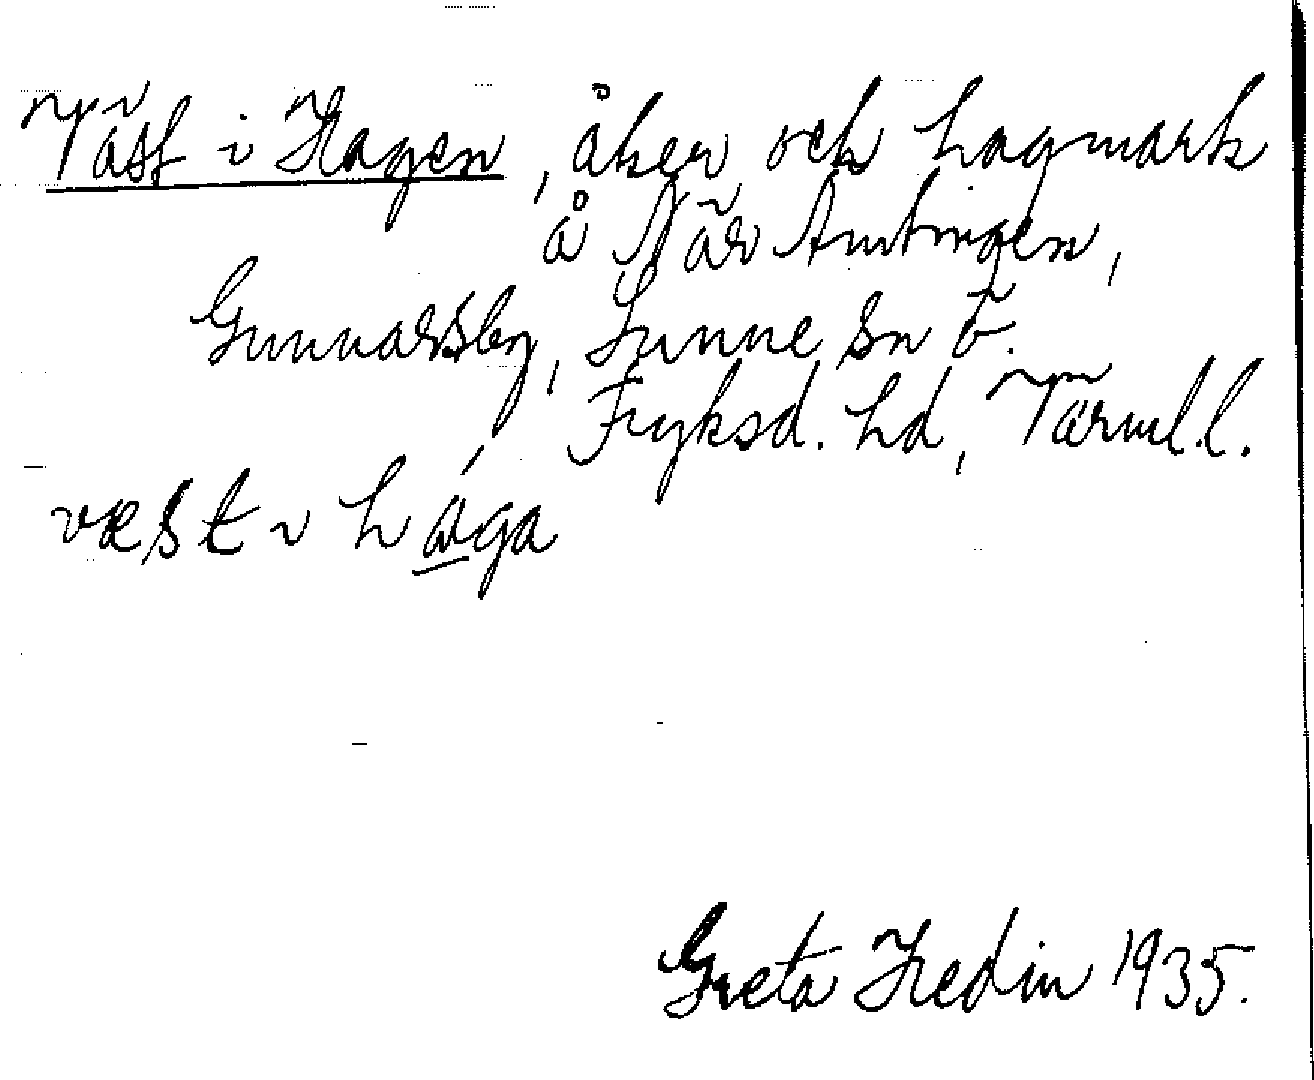 Väst i Hagen, åker och hagmark
å När Amtmyen,
Gunnarsby, Sunne sn Ö.
Fryksd. hd, Värml.l.
væst ɩ hága
Greta Hedin 1935.